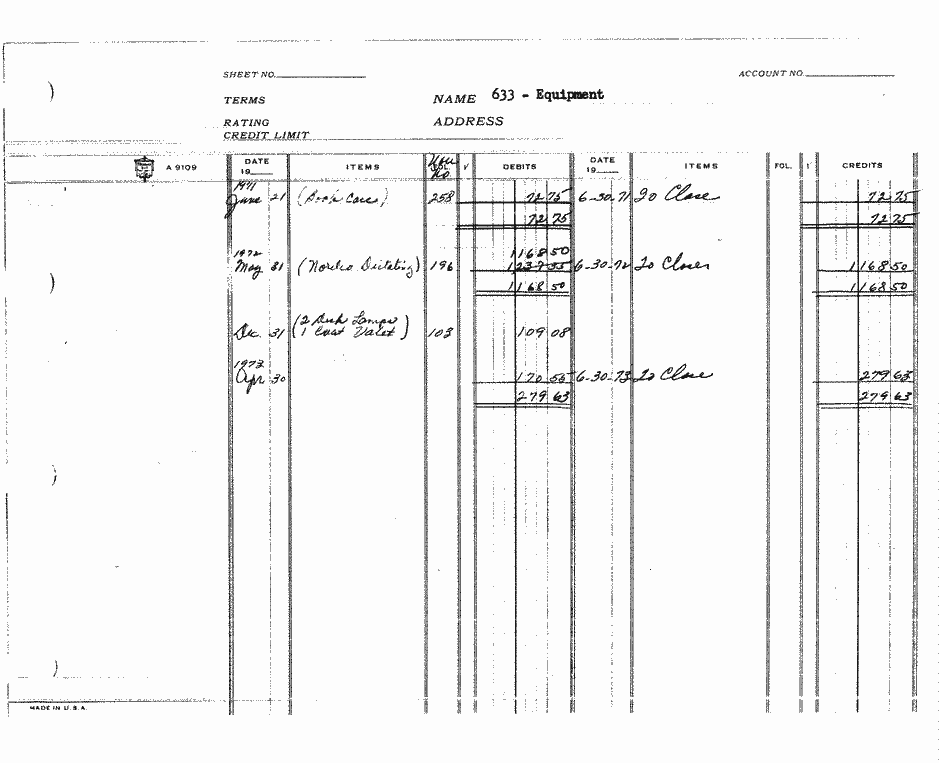 SHEET NO.
ACCOUNT NO.
TERMS
NAME 633 - Equipment
RATING
ADDRESS
CREDIT LIMIT
A 9109
DATE 19 ITEMS Vou No. √ DEBITS DATE 19 ITEMS FOL. √ CREDITS
1971
June 21 (Book Case) 258 72 75 6-30-71 To Close 72 75
72 75 72 75
1972 1168 50
May 31 (Norelco Dictating) 196 1237 55 6-30-72 To Close 1168 50
1168 50 1168 50
(2 Desk Lamps
Dec. 31 1 Coat Valet) 103 109 08
1973
Apr 30 170 55 6-30-73 To Close 279 63
279 63 279 63
MADE IN U.S.A.